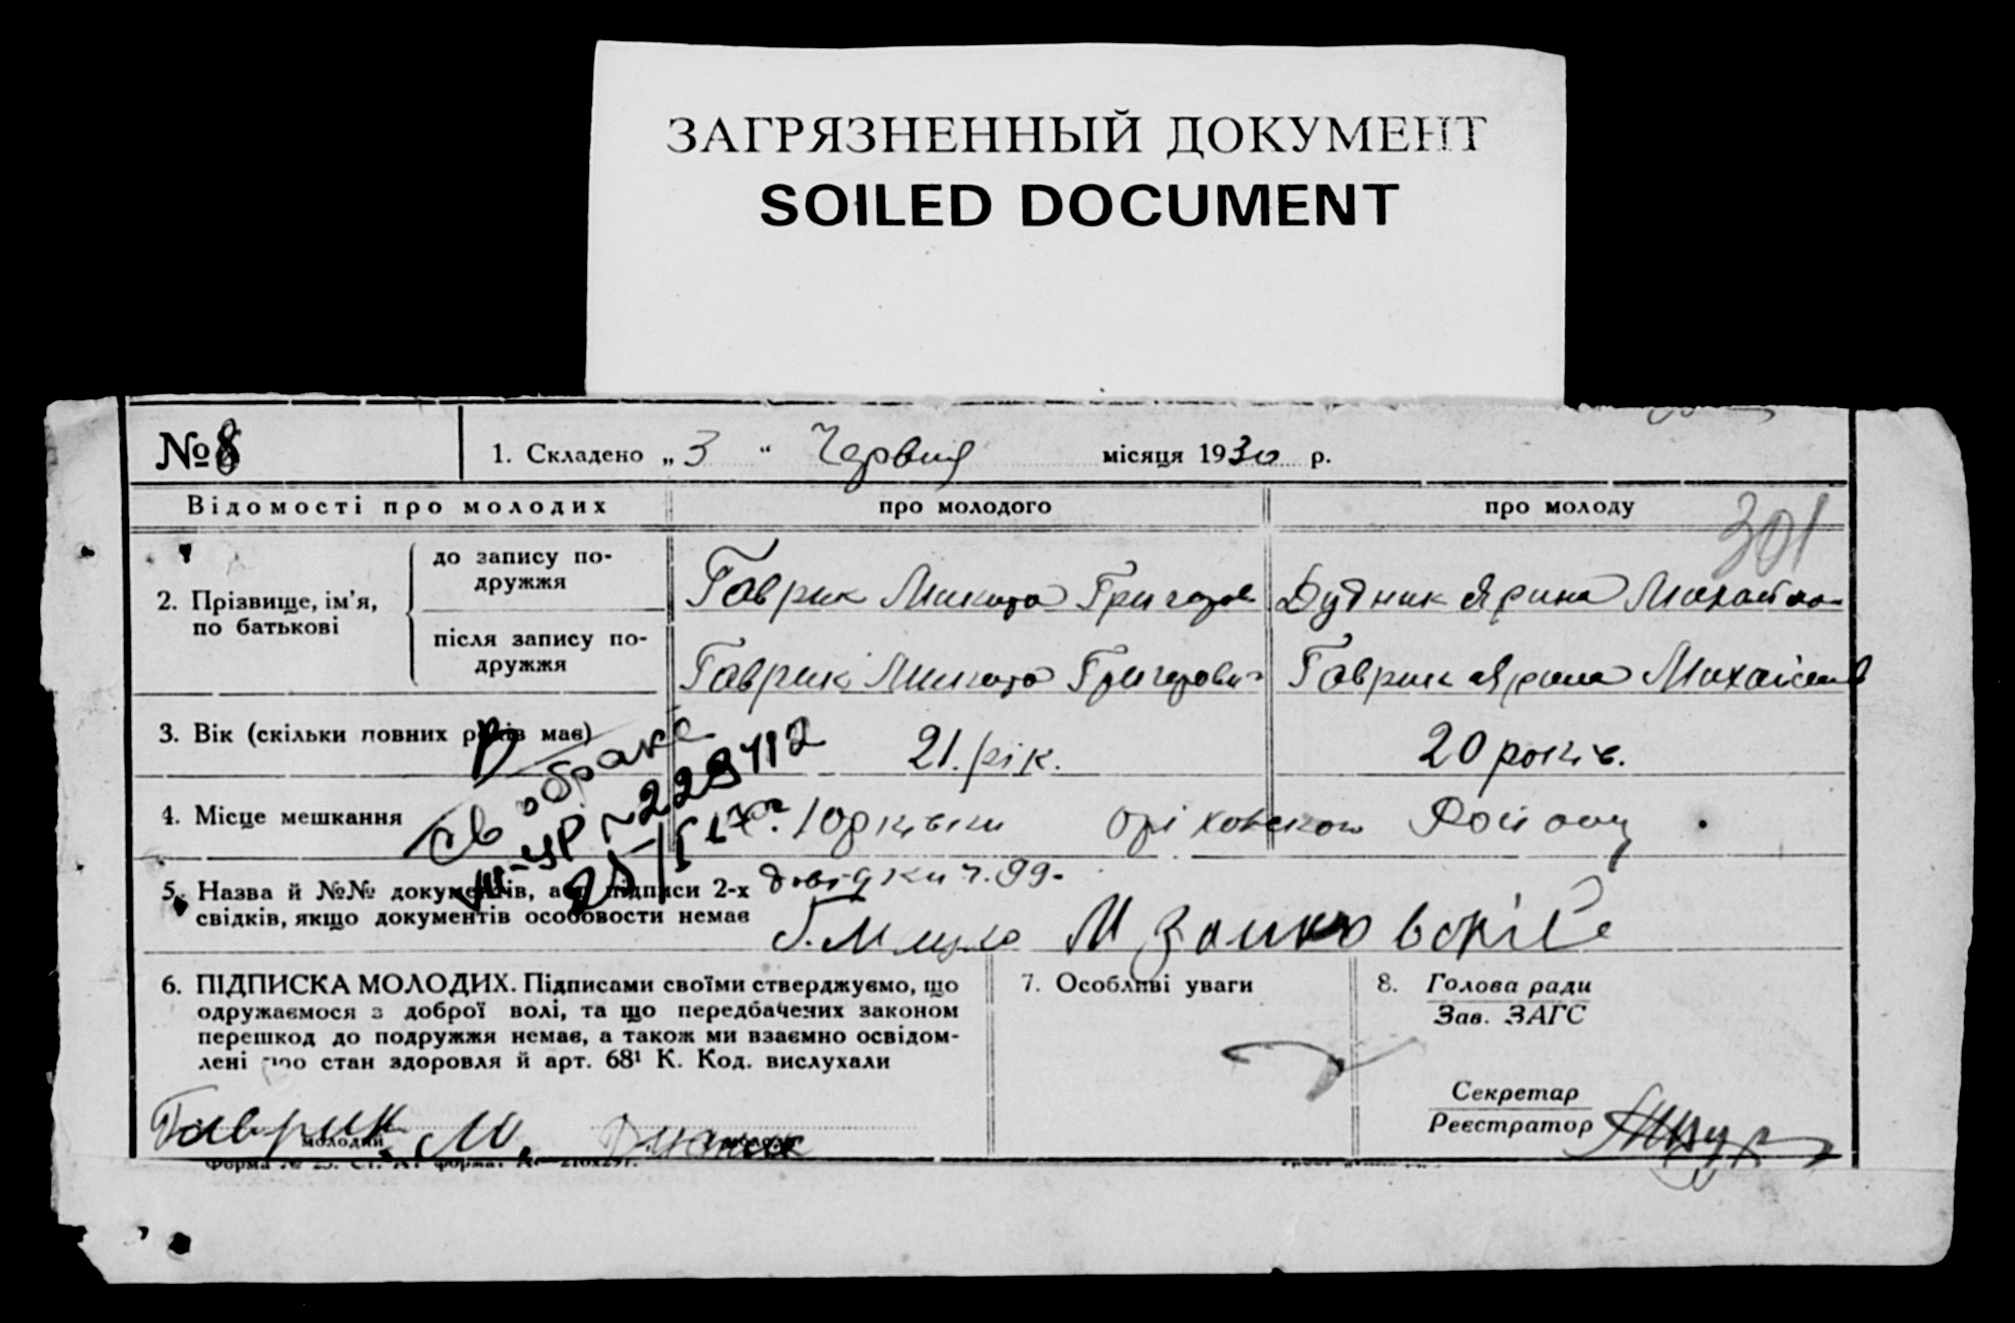 ЗАГРЯЗНЕННЫЙ ДОКУМЕНТ
SOILED DOCUMENT
№ 8
1. Складено „ 3 “ Червня місяця 1930 р.
Відомості про молодих
про молодого
про молоду
301
2. Прізвище, ім’я, по батькові
до запису подружжя
Гаврик Микита Григоров
Дудник Ярина Михайлов
після запису подружжя
Гаврик Микита Григорович
Гаврик Ярина Михайлов
3. Вік (скільки повних років має)
21. рік.
20 років.
4. Місце мешкання
Юрківки Оріховского Району
св. о браке
III-УР № 228712
5. Назва й №№ документів, або підписи 2-х
свідків, якщо документів особовости немає
довідки ч. 99.
6. ПІДПИСКА МОЛОДИХ. Підписами своїми стверджуємо, що
одружаємося з доброї волі, та що передбачених законом
перешкод до подружжя немає, а також ми взаємно освідом-
лені про стан здоровля й арт. 68¹ К. Код. вислухали
Гаврик М.
молодий
7. Особливі уваги
8. Голова ради
Зав. ЗАГС
Секретар
Реєстратор